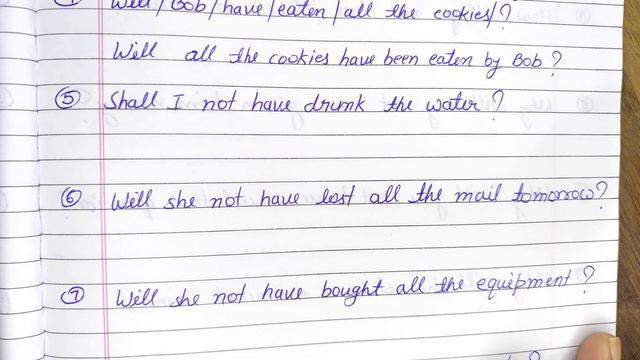 Will/Bob/have/eaten/all the cookies/?
Will all the cookies have been eaten by Bob?
⑤ Shall I not have drunk the water?
⑥ Will she not have lost all the mail tomorrow?
⑦ Will she not have bought all the equipment?